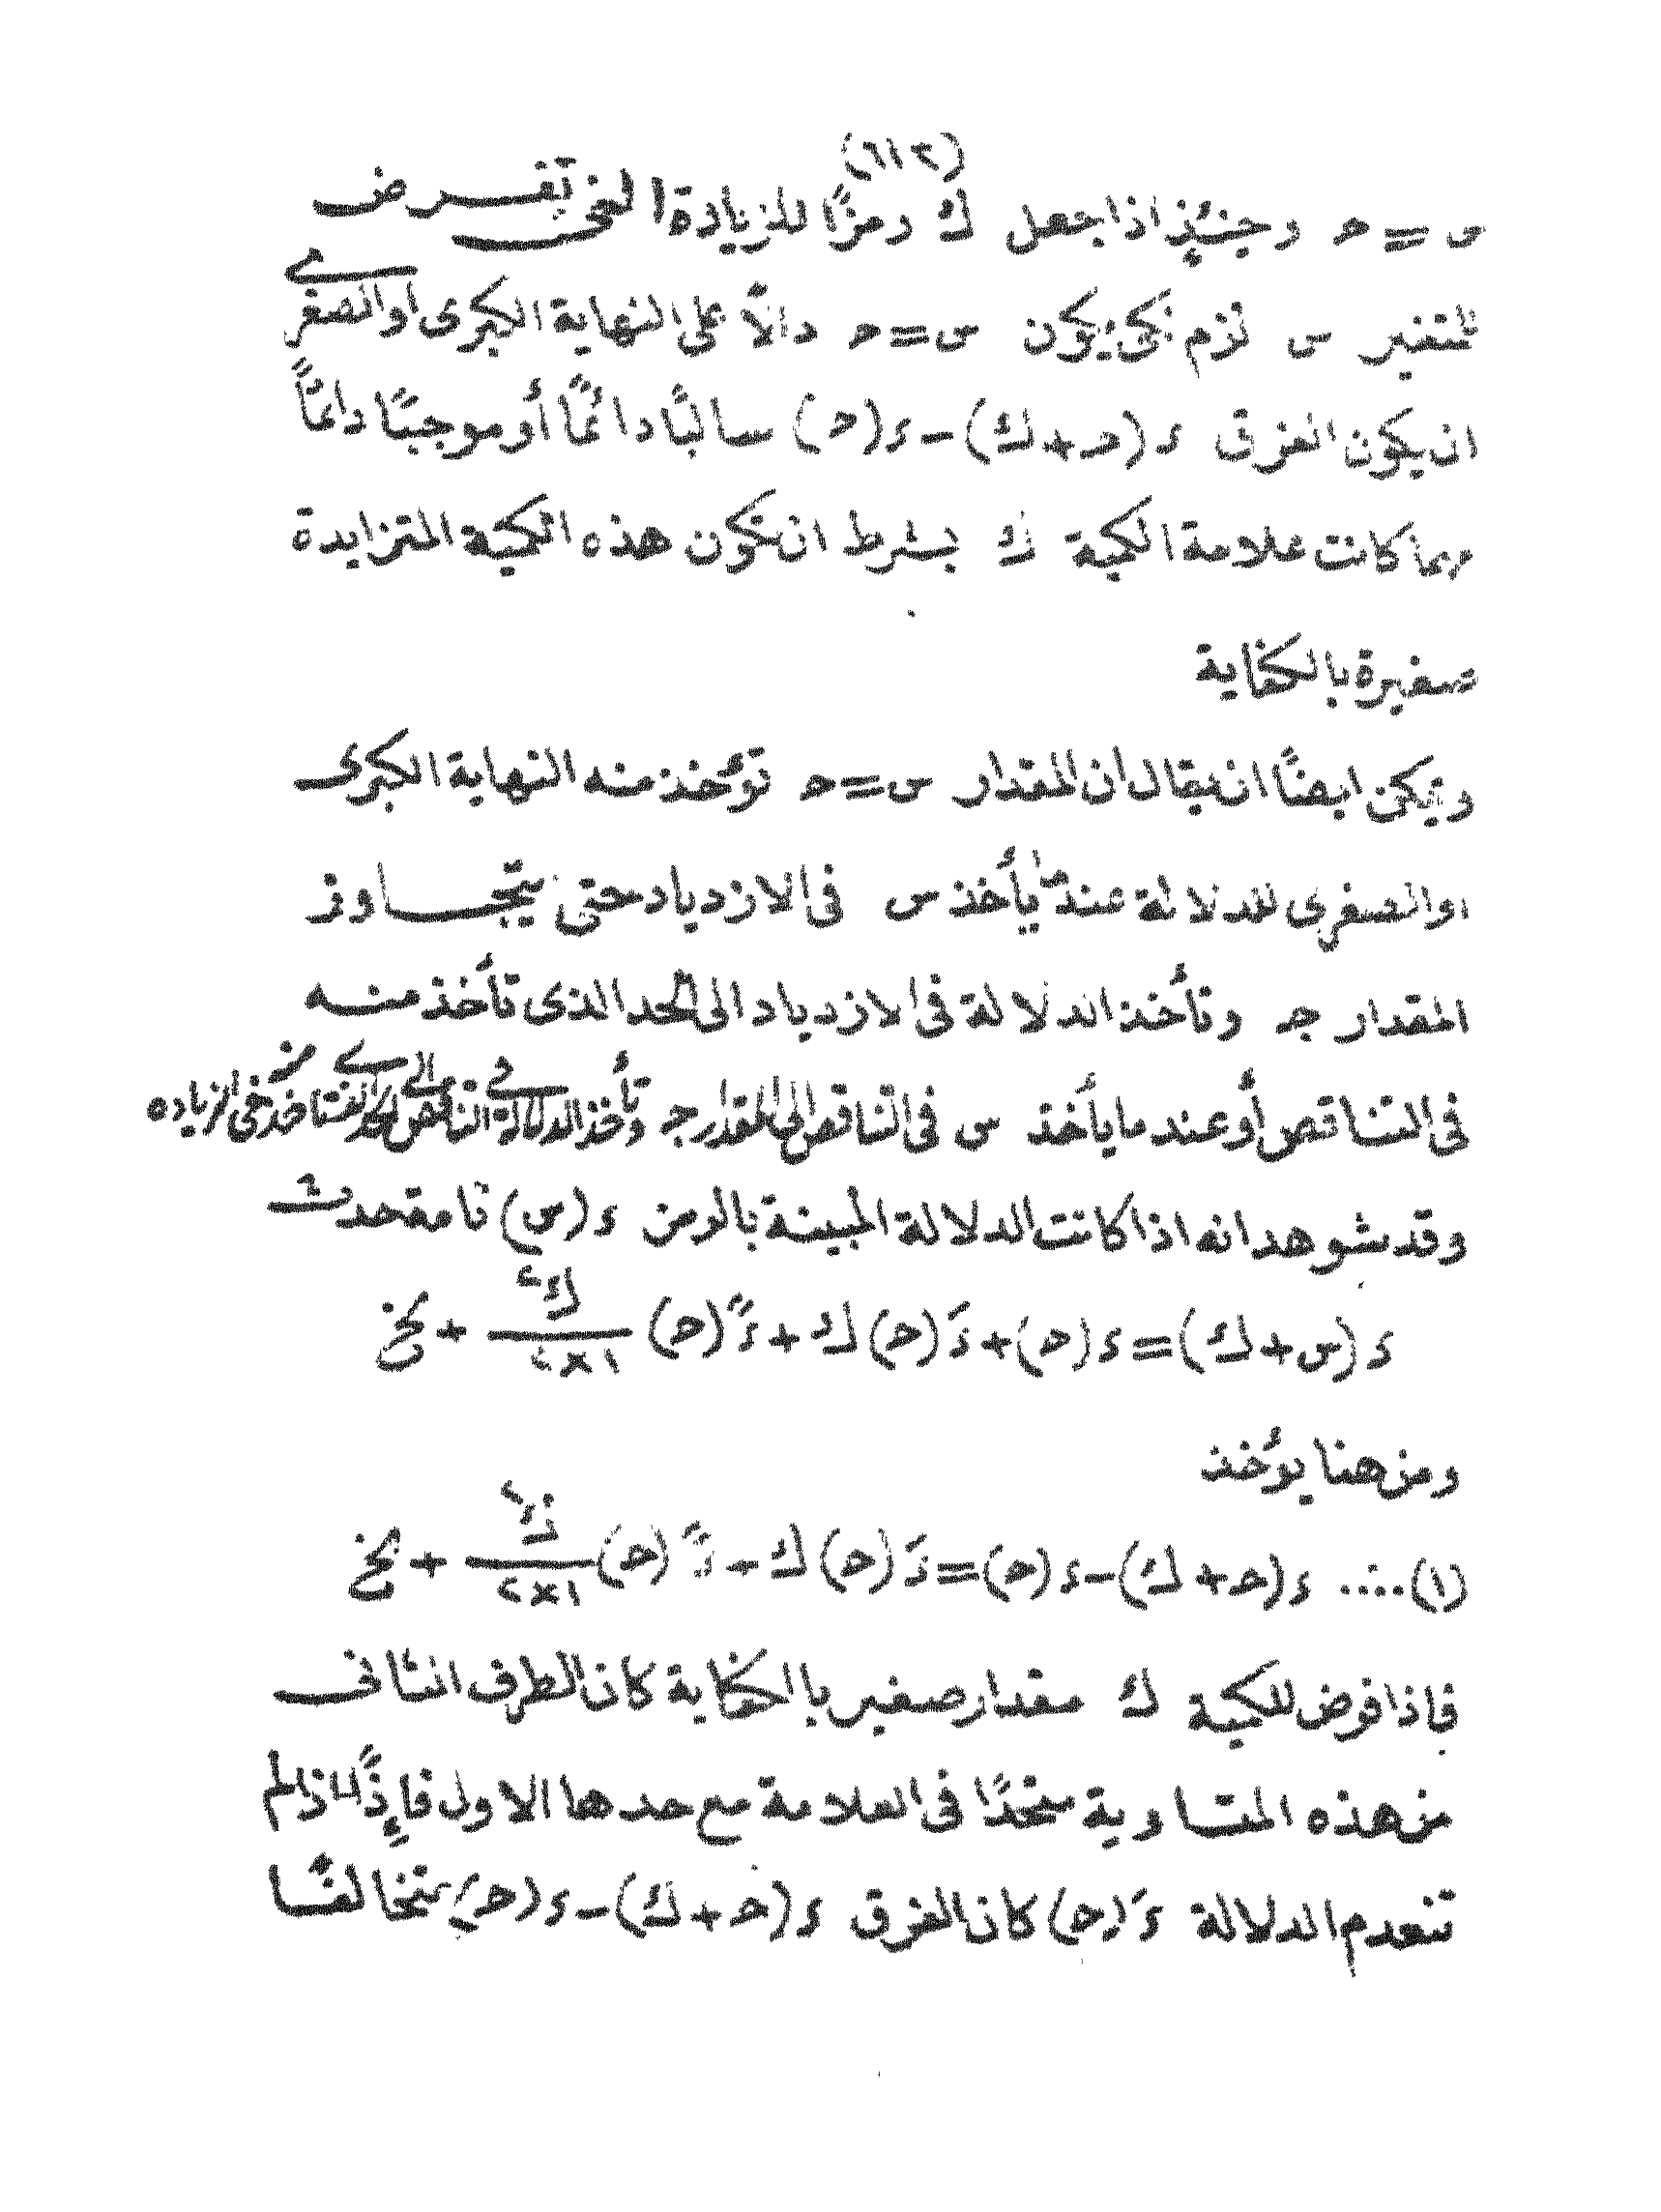 (٦١٢)
س = حـ وحينئذٍ اذا جعل ك رمزًا للزيادة التى تفرض
للمتغير س لزم لكى يكون س = حـ دالاً على النهاية الكبرى او الصغرى
ان يكون الفرق د (حـ + ك) - د (حـ) سالبًا دائمًا أو موجبًا دائمًا
مهما كانت علامة الكمية ك بشرط ان تكون هذه الكمية المتزايدة
صغيرة بالكفاية
ويمكن ايضًا ان يقال ان المقدار س = حـ تؤخذ منه النهاية الكبرى
او الصغرى للدلالة عند ما يأخذ س فى الازدياد حتى يتجاوز
المقدار جـ وتأخذ الدلالة فى الازدياد الى الحد الذى تأخذ منه
فى التناقص أو عند ما يأخذ س فى التناقص الى المقدار جـ وتأخذ الدلالة فى التناقص الى الحد الذى تأخذ منه فى الزياده
وقد شوهد انه اذا كانت الدلالة المبينة بالرمز د (س) تامة حدث
د (س + ك) = د (حـ) + دَ (حـ) ك + دً (حـ) ك٢/١×٢ + لخ
ومن هنا يؤخذ
(١) ..... د (حـ + ك) - د (حـ) = دَ (حـ) ك - دً (حـ) ك٢/١×٢ + لخ
فاذا فرض للكمية ك مقدار صغير بالكفاية كان الطرف الثانى
من هذه المتساوية متحدًا فى العلامة مع حدها الاول فإذًا اذا لم
تنعدم الدلالة دَ (حـ) كان الفرق د (حـ + ك) - د (حـ) متخالفًا